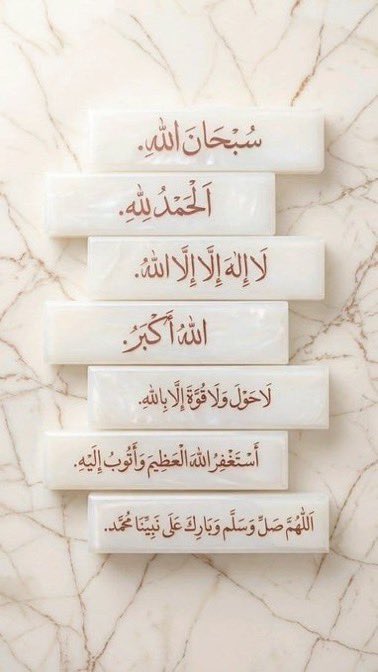 سُبْحَانَ اللهِ.
اَلْحَمْدُ لِلهِ.
لَا إِلٰهَ إِلَّا إِلَّا اللهُ.
اللهُ أَكْبَرُ.
لَا حَوْلَ وَلَا قُوَّةَ إِلَّا بِاللهِ.
أَسْتَغْفِرُ اللهَ الْعَظِيمَ وَأَتُوبُ إِلَيْهِ.
اَللّٰهُمَّ صَلِّ وَسَلَّم وَبَارِكَ عَلَى نَبِيِّنَا مُحَمَّد.